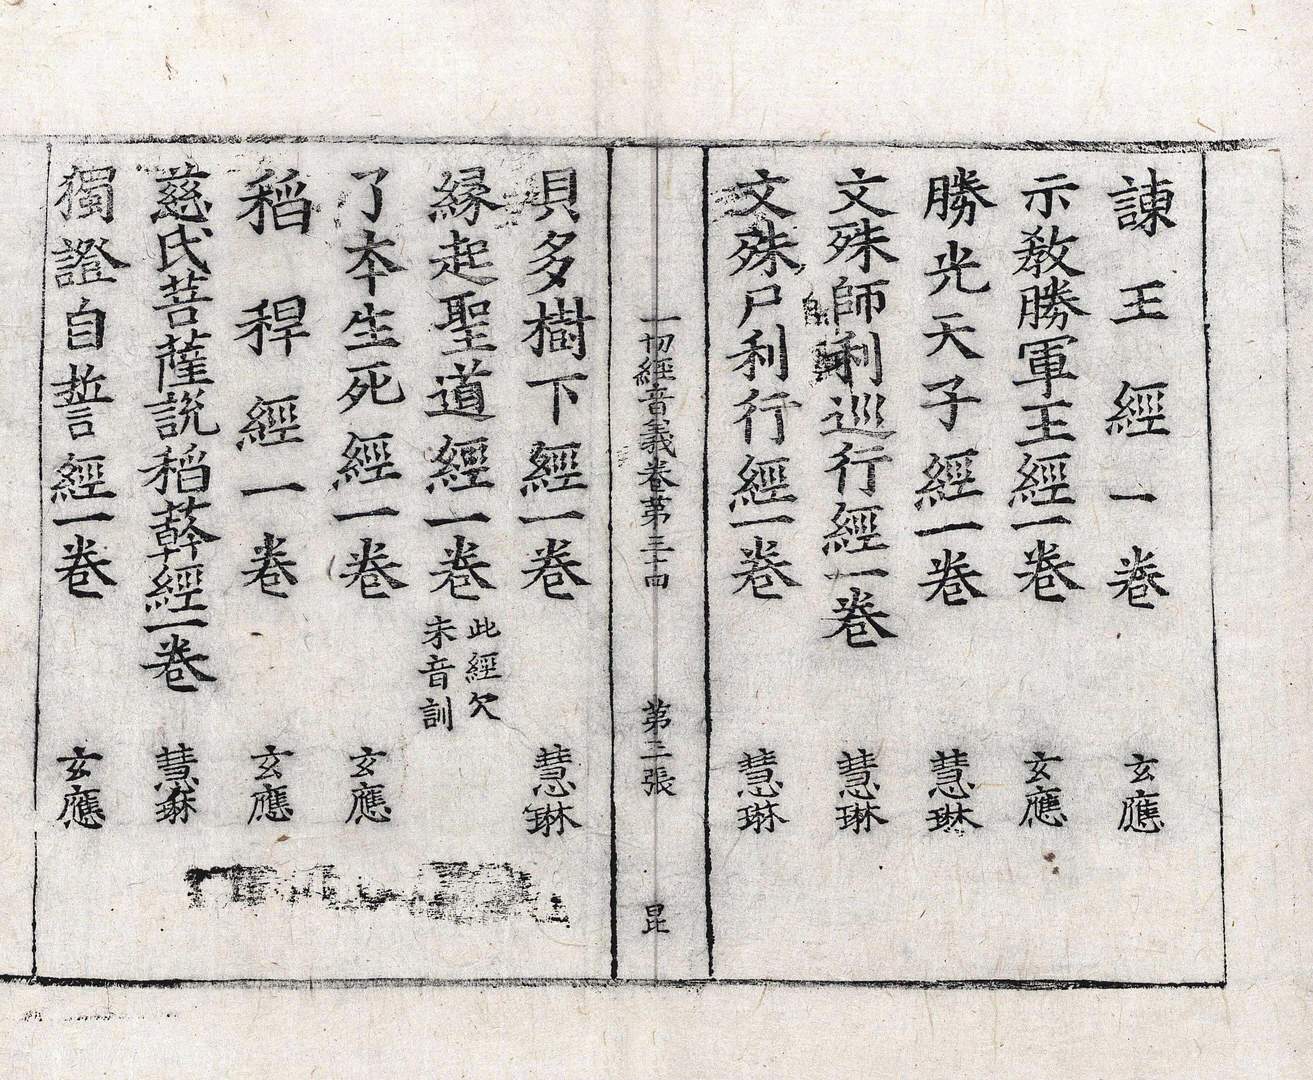 諫王經一卷 玄應
示敎勝軍王經一卷 玄應
勝光天子經一卷 慧琳
文殊師利巡行經一卷 慧琳
文殊尸利行經一卷 慧琳
一切經音義卷第三十四 第三張 昆
貝多樹下經一卷 慧琳
緣起聖道經一卷 此經欠
未音訓
了本生死經一卷 玄應
稻稈經一卷 玄應
慈氏菩薩說稻蕣經一卷 慧琳
獨證自誓經一卷 玄應